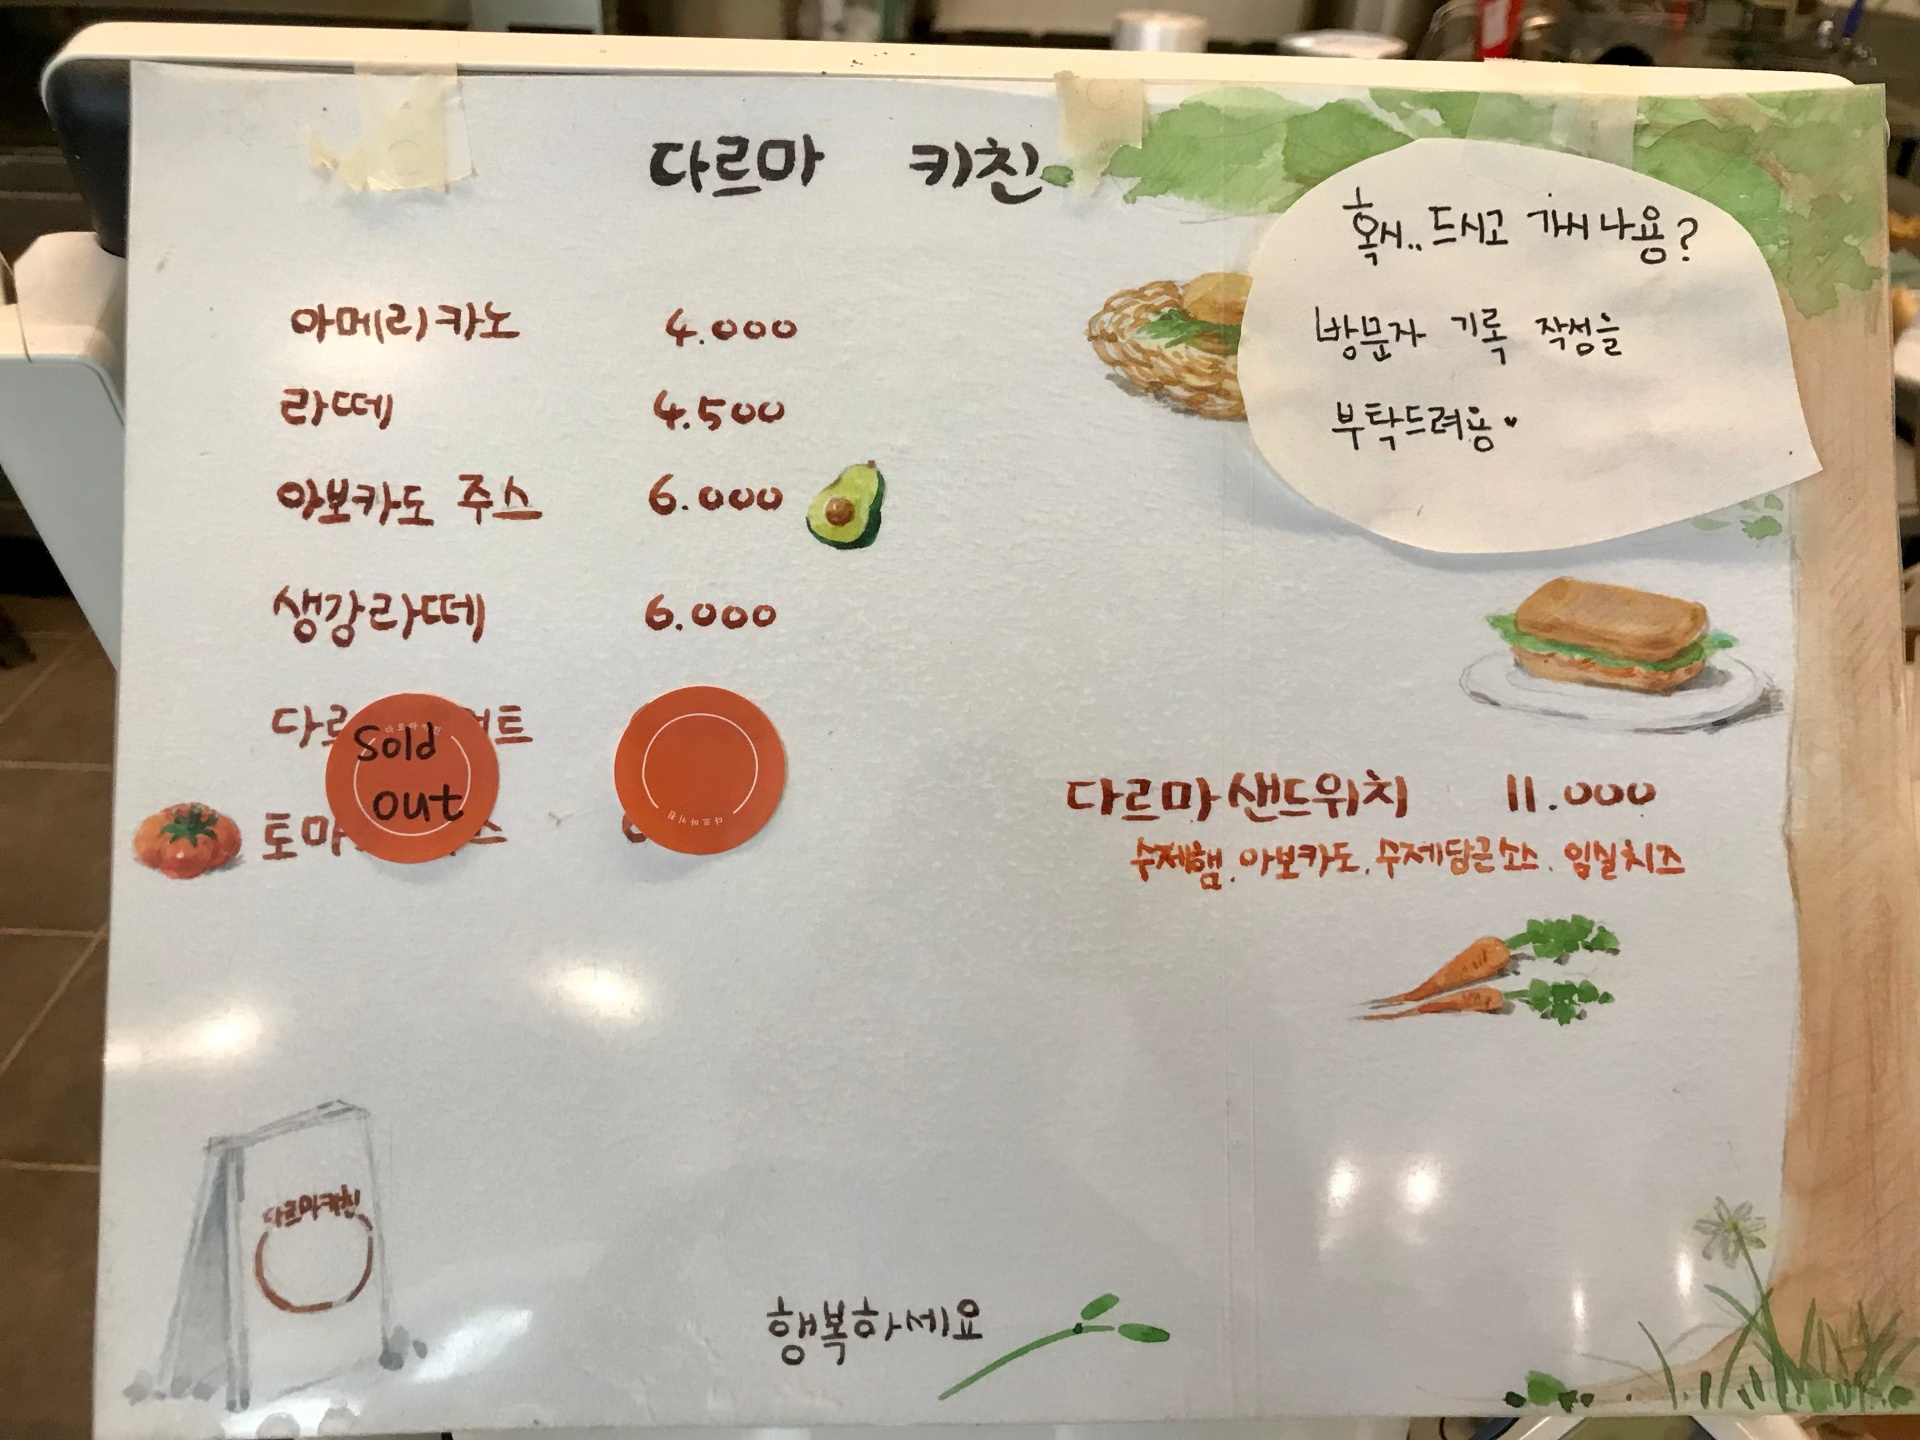 다르마 키친
혹시.. 드시고 가시나용?
방문자 기록 작성을
부탁드려용♥
아메리카노 4.000
라떼 4.500
아보카도 주스 6.000
생강라떼 6.000
Sold
out
다르마키친
다르마 샌드위치 11.000
수제햄. 아보카도. 수제당근소스. 임실치즈
다르마키친
행복하세요